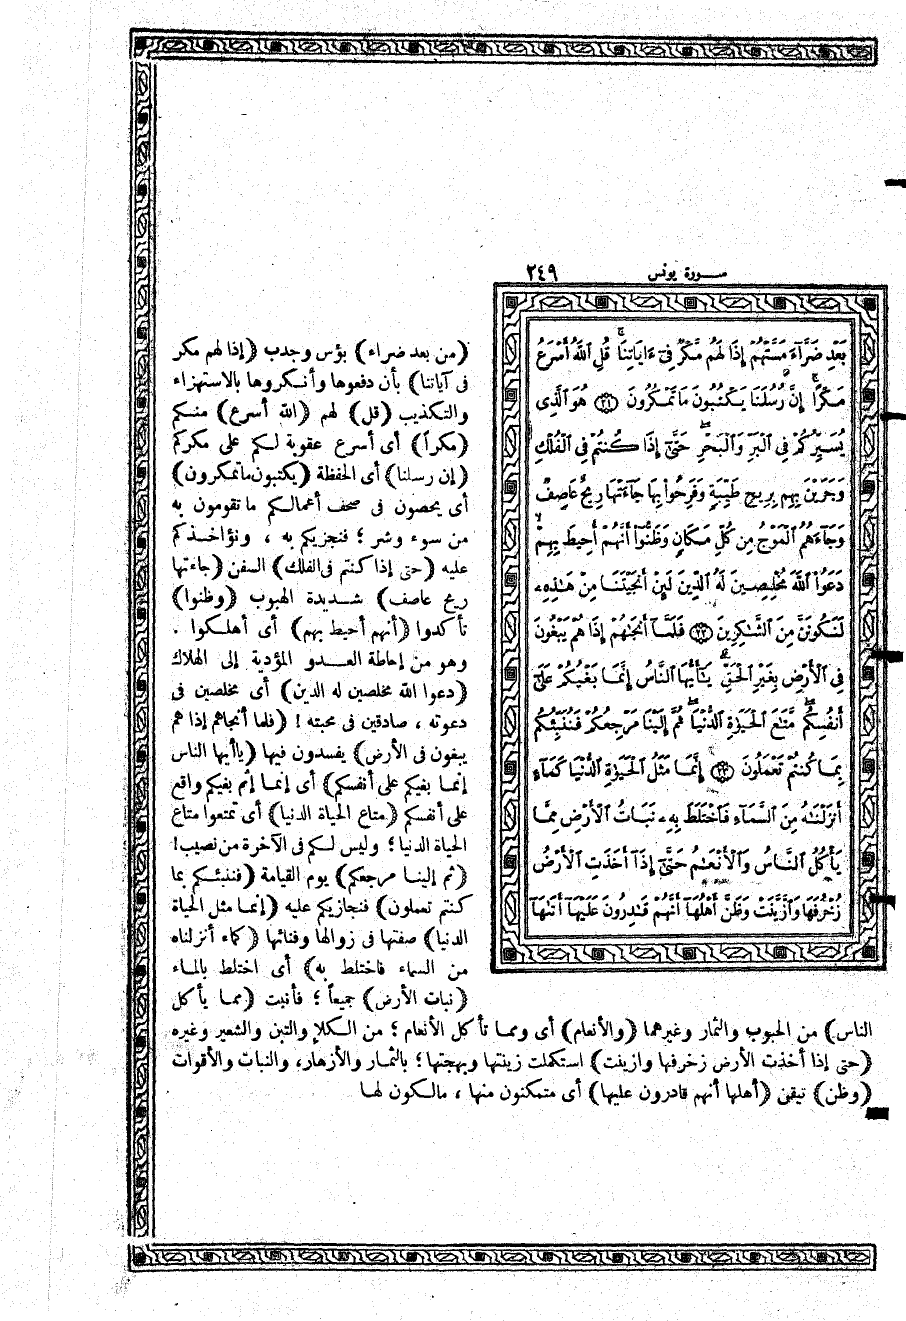 سورة يونس ٢٤٩
بَعْدِ ضَرَّآءَ مَسَّتْهُمْ إِذَا لَهُم مَّكْرٌ فِىٓ ءَايَاتِنَا ۚ قُلِ ٱللَّهُ أَسْرَعُ
مَكْرًا ۚ إِنَّ رُسُلَنَا يَكْتُبُونَ مَا تَمْكُرُونَ ﴿٢١﴾ هُوَ ٱلَّذِى
يُسَيِّرُكُمْ فِى ٱلْبَرِّ وَٱلْبَحْرِ ۖ حَتَّىٰٓ إِذَا كُنتُمْ فِى ٱلْفُلْكِ
وَجَرَيْنَ بِهِم بِرِيحٍ طَيِّبَةٍ وَفَرِحُوا۟ بِهَا جَآءَتْهَا رِيحٌ عَاصِفٌ
وَجَآءَهُمُ ٱلْمَوْجُ مِن كُلِّ مَكَانٍ وَظَنُّوٓا۟ أَنَّهُمْ أُحِيطَ بِهِمْ ۙ
دَعَوُا۟ ٱللَّهَ مُخْلِصِينَ لَهُ ٱلدِّينَ لَئِنْ أَنجَيْتَنَا مِنْ هَـٰذِهِۦ
لَنَكُونَنَّ مِنَ ٱلشَّـٰكِرِينَ ﴿٢٢﴾ فَلَمَّآ أَنجَىٰهُمْ إِذَا هُمْ يَبْغُونَ
فِى ٱلْأَرْضِ بِغَيْرِ ٱلْحَقِّ ۗ يَـٰٓأَيُّهَا ٱلنَّاسُ إِنَّمَا بَغْيُكُمْ عَلَىٰٓ
أَنفُسِكُم ۖ مَّتَـٰعَ ٱلْحَيَوٰةِ ٱلدُّنْيَا ۖ ثُمَّ إِلَيْنَا مَرْجِعُكُمْ فَنُنَبِّئُكُم
بِمَا كُنتُمْ تَعْمَلُونَ ﴿٢٣﴾ إِنَّمَا مَثَلُ ٱلْحَيَوٰةِ ٱلدُّنْيَا كَمَآءٍ
أَنزَلْنَـٰهُ مِنَ ٱلسَّمَآءِ فَٱخْتَلَطَ بِهِۦ نَبَاتُ ٱلْأَرْضِ مِمَّا
يَأْكُلُ ٱلنَّاسُ وَٱلْأَنْعَـٰمُ حَتَّىٰٓ إِذَآ أَخَذَتِ ٱلْأَرْضُ
زُخْرُفَهَا وَٱزَّيَّنَتْ وَظَنَّ أَهْلُهَآ أَنَّهُمْ قَـٰدِرُونَ عَلَيْهَآ أَتَىٰهَآ
(من بعد ضراء) بؤس وجدب (إذا لهم مكر
فى آياتنا) بأن دفعوها وأنكروها بالاستهزاء
والتكذيب (قل) لهم (الله أسرع) منكم
(مكراً) أى أسرع عقوبة لكم على مكركم
(إن رسلنا) أى الحفظة (يكتبون ما تمكرون)
أى يحصون فى صحف أعمالكم ما تقومون به
من سوء وشر ؛ فنجزيكم به ، ونؤاخذكم
عليه (حتى إذا كنتم فى الفلك) السفن (جاءتها
ريح عاصف) شديدة الهبوب (وظنوا)
تأكدوا (أنهم أحيط بهم) أى أهلكوا .
وهو من إحاطة العدو المؤدية إلى الهلاك
(دعوا الله مخلصين له الدين) أى مخلصين فى
دعوته ، صادقين فى محبته ! (فلما أنجاهم إذا هم
يبغون فى الأرض) يفسدون فيها (ياأيها الناس
إنما بغيكم على أنفسكم) أى إنما إثم بغيكم واقع
على أنفسكم (متاع الحياة الدنيا) أى تمتعوا متاع
الحياة الدنيا ؛ وليس لكم فى الآخرة من نصيب !
(ثم إلينا مرجعكم) يوم القيامة (فننبئكم بما
كنتم تعملون) فنجازيكم عليه (إنما مثل الحياة
الدنيا) صفتها فى زوالها وفنائها (كماء أنزلناه
من السماء فاختلط به) أى اختلط بالماء
(نبات الأرض) جميعاً ؛ فأنبت (مما يأكل
الناس) من الحبوب والثمار وغيرهما (والأنعام) أى ومما تأكل الأنعام ؛ من الكلإ والتبن والشعير وغيره
(حتى إذا أخذت الأرض زخرفها وازينت) استكملت زينتها وبهجتها ؛ بالثمار والأزهار، والنبات والأقوات
(وظن) تيقن (أهلها أنهم قادرون عليها) أى متمكنون منها ، مالكون لها